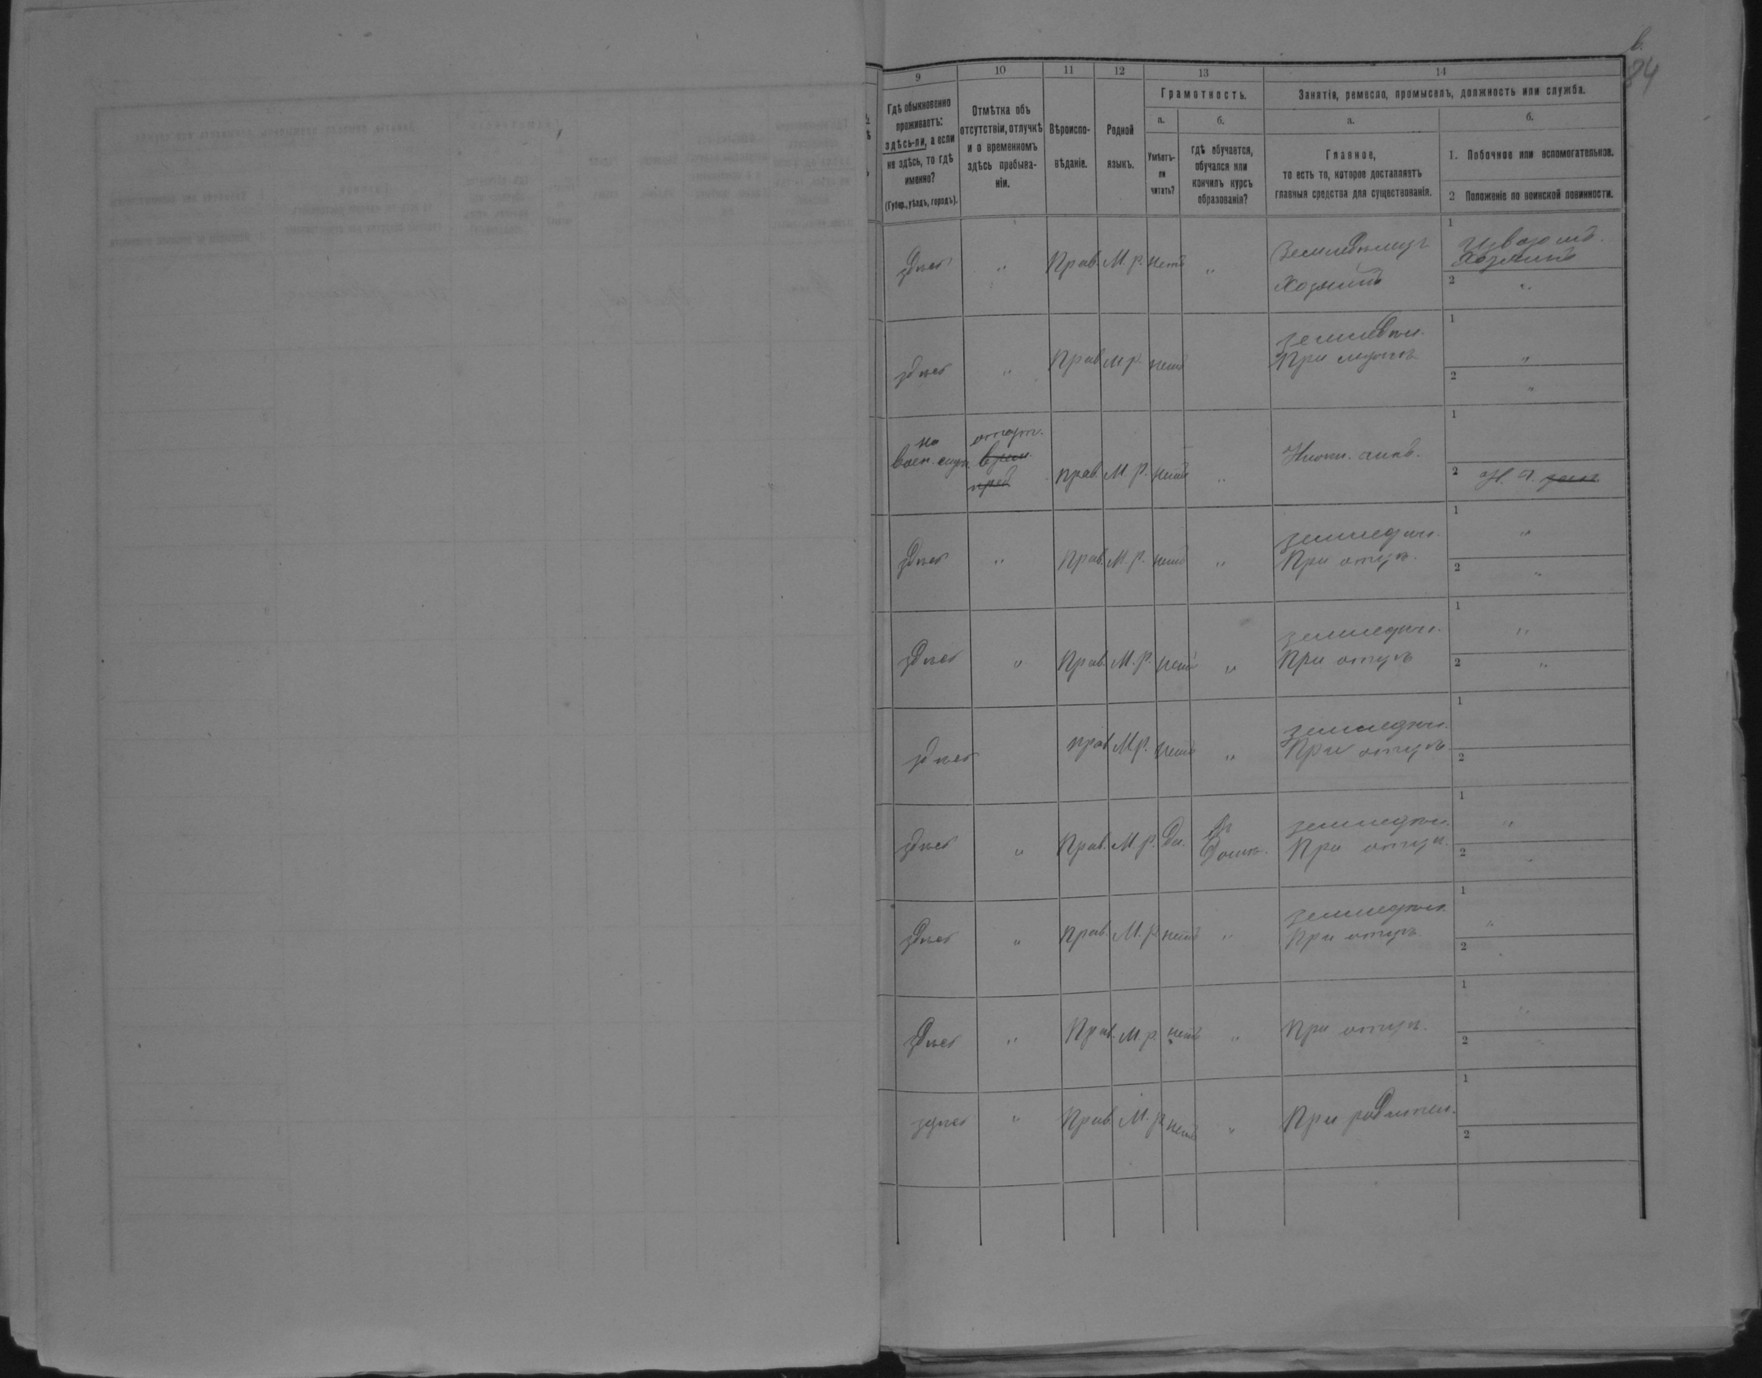 84
9 10 11 12 13 14
Гдѣ обыкновенно проживаетъ: здѣсь-ли, а если не здѣсь, то гдѣ именно? (Губер., уѣздъ, городъ).
Отмѣтка объ отсутствіи, отлучкѣ и о временномъ здѣсь пребываніи.
Вѣроиспо-вѣданіе.
Родной языкъ.
Грамотность.
а.
Умѣетъ-ли читать?
б.
Гдѣ обучается, обучался или кончилъ курсъ образованія?
Занятія, ремесло, промыселъ, должность или служба.
а.
Главное,
то есть то, которое доставляетъ
главныя средства для существованія.
б.
1. Побочное или вспомогательное.
2 Положеніе по воинской повинности.
здѣсь " Прав. М. р. нетъ " Земледѣлецъ Хозяинъ 1 Хозяинъ 2 "
здѣсь " Прав М р. нетъ земледѣл. При мужѣ 1 " 2 "
на воен. служ. Прав. М. р. нетъ " 1 2
здѣсь " Прав. М. р. нетъ " земледѣл. При отцѣ. 1 " 2 "
здѣсь " Прав. М. р. нетъ " земледѣл. При отцѣ 1 " 2 "
здѣсь прав М. р. нетъ " земледѣл. При отцѣ 1 2
здѣсь " Прав. М. р. Да. " земледѣл. При отцѣ. 1 " 2
здѣсь " Прав. М. р. нетъ " земледѣл. При отцѣ. 1 " 2
здѣсь " Прав. М. р. нетъ " При отцѣ. 1 " 2
здѣсь " Прав. М. р. нетъ " При родител. 1 2